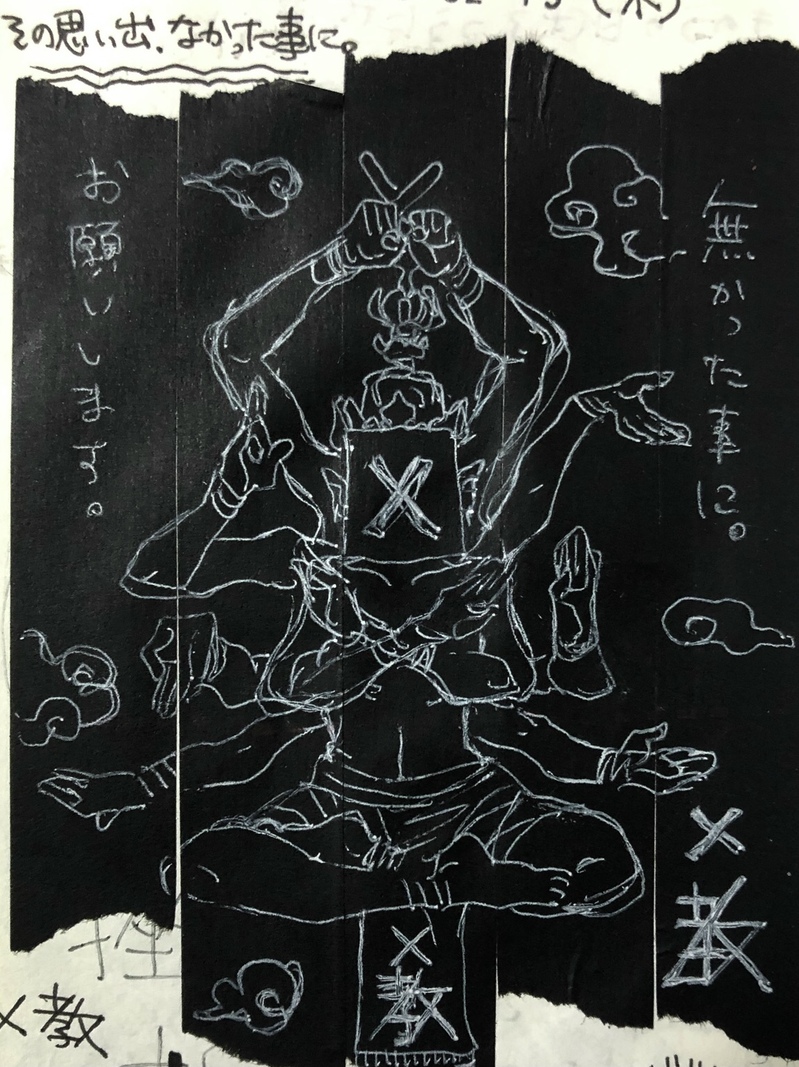 (木)
その思い出、なかった事に。
無かった事に。
お願いします。
×
×教
×教
×教